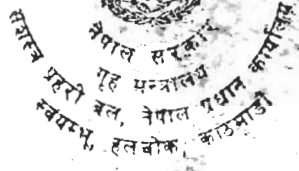 नेपाल सरकार
गृह मन्त्रालय
सशस्त्र प्रहरी बल, नेपाल प्रधान कार्यालय
स्वयम्भू, हलचोक, काठमाडौं